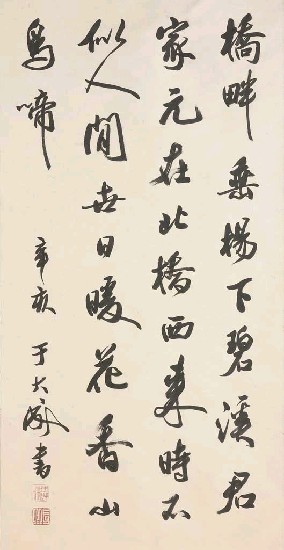 橋畔垂楊下碧溪君
家元在北橋西來時不
似人間世日暖花香山
鳥啼
辛亥于大成書